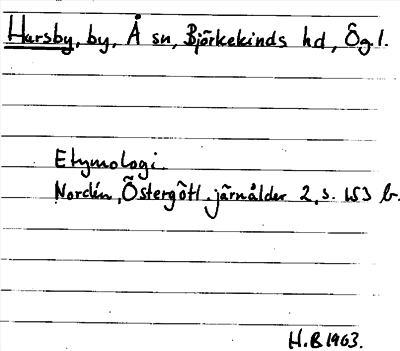 Harsby, by, Å sn, Björkekinds hd, Ög.l.
Etymologi.
Nordén, Östergötl. järnålder 2, s. 153 b.
H.B 1963.